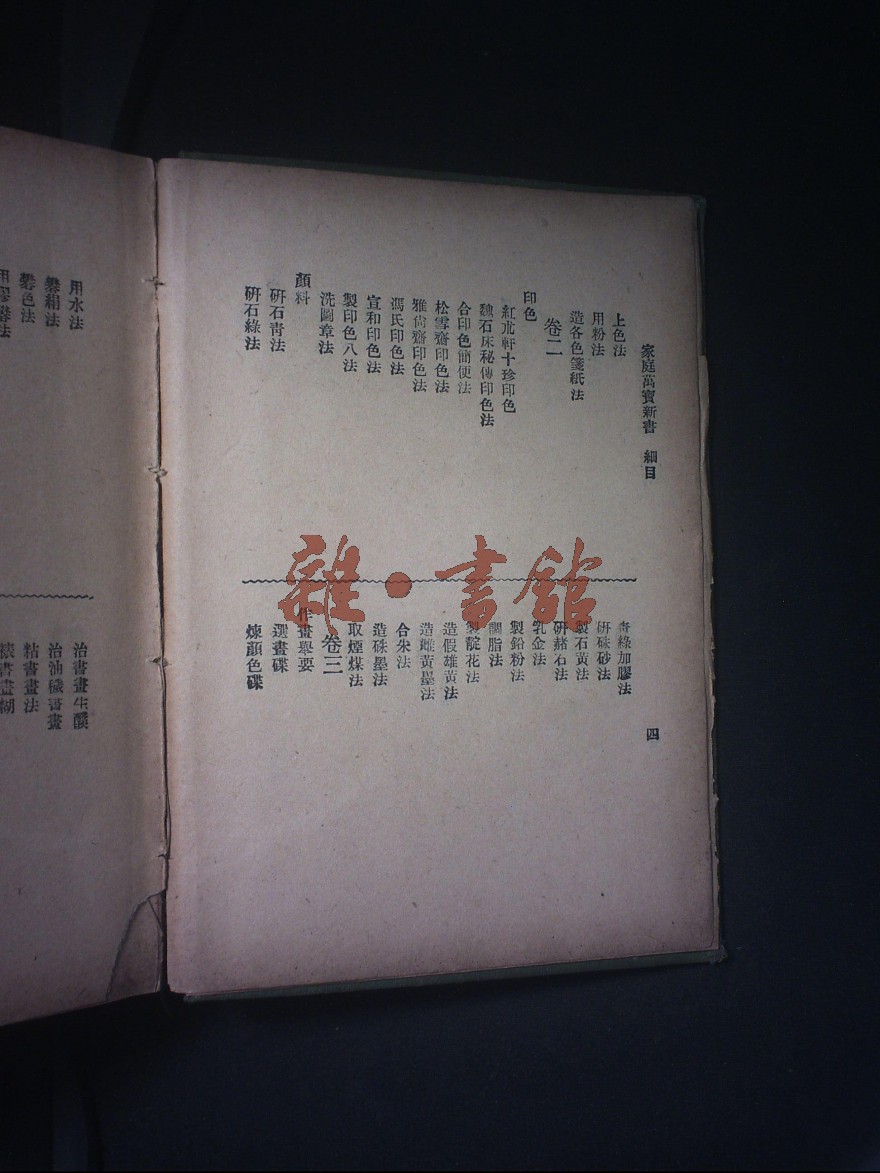 家庭萬寶新書 細目
四
上色法
用粉法
造各色箋紙法
卷二
印色
紅朮軒十珍印色
魏石床秘傳印色法
合印色簡便法
松雪齋印色法
雅尙齋印色法
馮氏印色法
宣和印色法
製印色八法
洗圖章法
顏料
硏石靑法
硏石綠法
靑綠加膠法
硏硃砂法
製石黃法
硏赭石法
乳金法
製鉛粉法
調脂法
製靛花法
造假雄黃法
造雌黃墨法
合朱法
造硃墨法
取煙煤法
卷三
作畫舉要
選畫碟
煉顏色碟
用水法
礬絹法
礬色法
治書畫生黴
治油穢書畫
粘書畫法
雜·書館